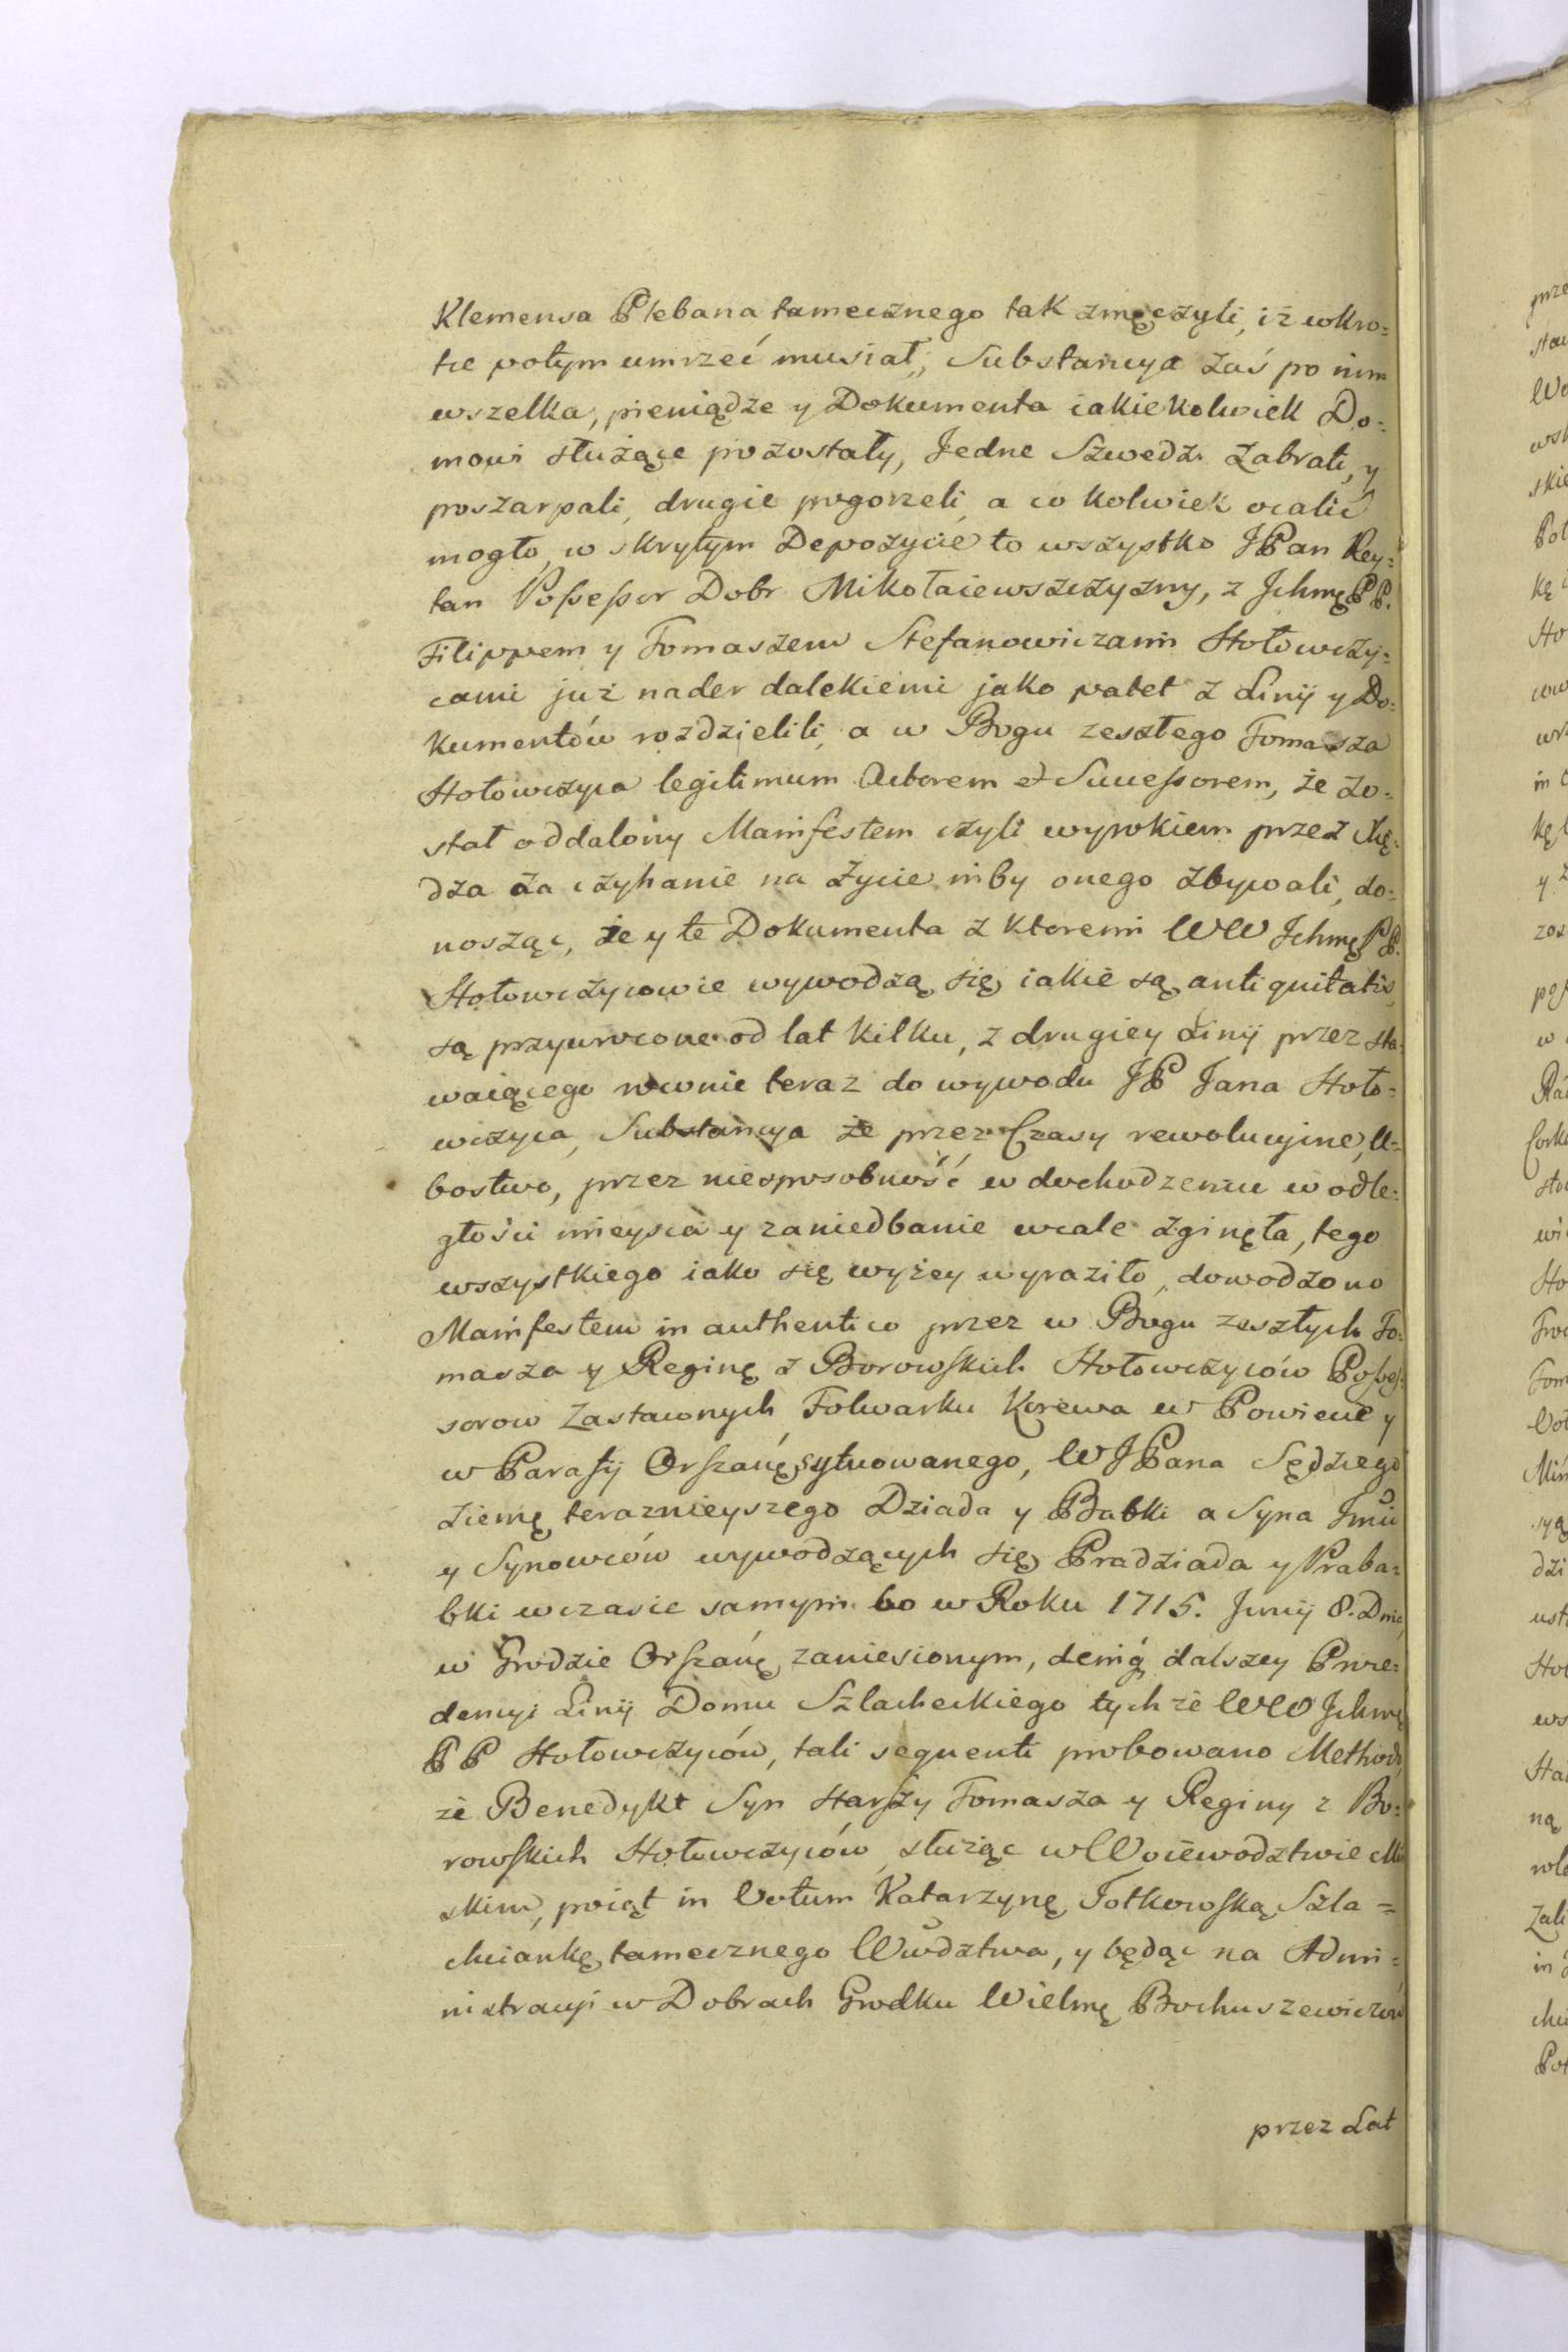 Klemensa Plebana tamecznego tak zmęczyli, iż wkro=
tce potym umrzeć musiał, Substancya zaś po nim
wszelka, pieniądze y Dokumenta iakiekolwiek Do=
mowi służące pozostały, Jedne Szwedzi zabrali, y
poszarpali, drugie pogorzeli, a co kolwiek ocalić
mogło, w skrytym Depozycie to wszystko JPan Rey=
tan Possessor Dobr Mikołaiewszczyzny, z Jchmę PP.
Filippem y Tomaszem Stefanowiczami Hołowczy=
cami już nader dalekiemi jako patet z Linij y Do=
kumentów rozdzielili, a w Bogu zeszłego Tomasza
Hołowczyca legitimum Actorem et Successorem, że zo=
stał oddalony Manifestem czyli wyrokiem przez Xię=
dza za czyhanie na życie niby onego zbywali, do=
nosząc, że y te Dokumenta z ktoremi WW Jchmę PP.
Hołowczycowie wywodzą się, iakie są antiquitatis,
są przywrocone od lat kilku, z drugiey Linij przez sta=
waiącego rownie teraz do wywodu JP Jana Hoło=
wczyca, Substancya że przez Czasy rewolucyine, U=
bostwo, przez niesposobność w dochodzeniu w odle=
głości mieysca y zaniedbanie wcale zginęła, tego
wszystkiego iako się wyżey wyraziło, dowodzono
Manifestem in authentico przez w Bogu zeszłych To=
masza y Reginę z Borowskich Hołowczyców Posses=
sorow Zastawnych Folwarku Korewa w Powiecie y
w Parafij Orszanę sytuowanego, WJPana Sędziego
Ziemę terazniejszego Dziada y Babki a Syna Jmci
y Synowców wywodzących się Pradziada y Praba=
bki wczasie samym bo w Roku 1715. Junij 8. Dnia
w Grodzie Orszanę zaniesionym, deniq dalszey Proce=
dencyi Linij Domu Szlacheckiego tychże WW Jchmę
PP Hołowczyców, tali sequenti probowano Methodo
że Benedykt Syn starszy Tomasza y Reginy z Bo=
rowskich Hołowczyców, służąc w Woiewodztwie Miń
skim, poiął in Votum Katarzynę Fotkowską Szla=
chciankę tamecznego Wwdztwa, y będąc na Admi=
nistracyi w Dobrach Grodku Wielmę Bochuszewiczow
przez Lat